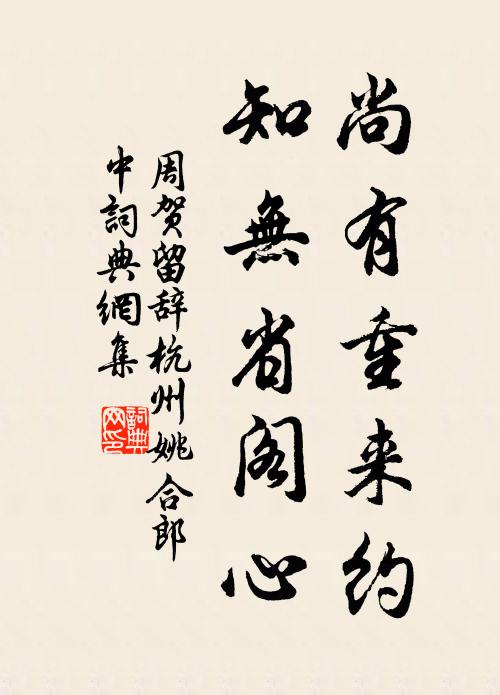 尚有重来约
知無省阁心
周贺留辞杭州姚合郎
中詞典網集
詞典
网印